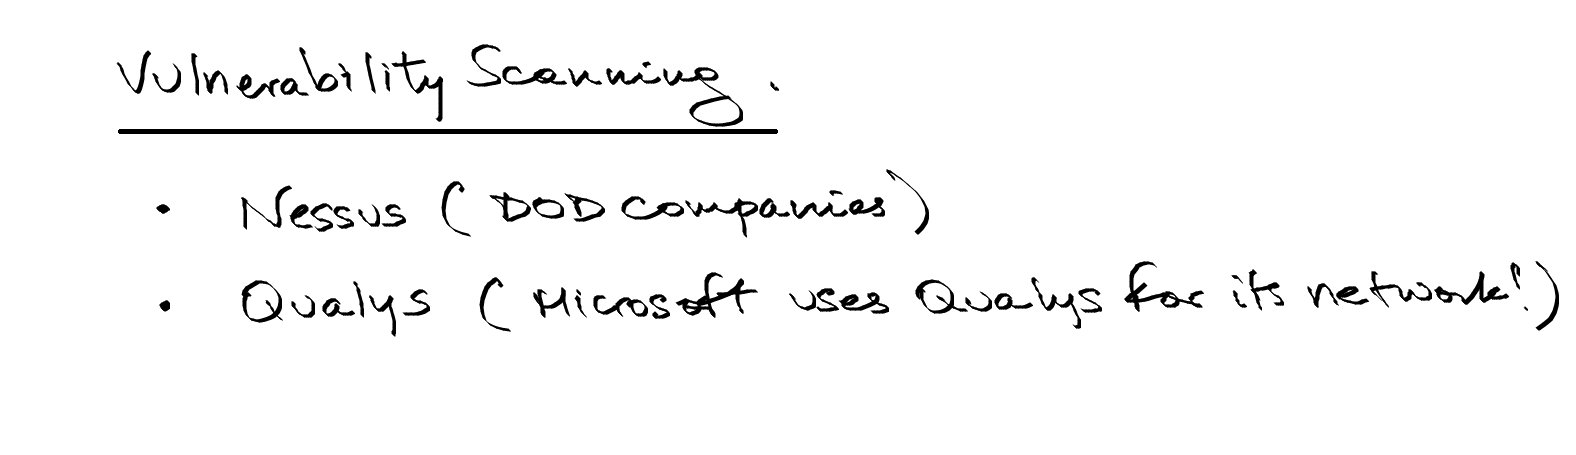 Vulnerability Scanning.
• Nessus (DOD companies)
• Qualys (Microsoft uses Qualys for its network!)